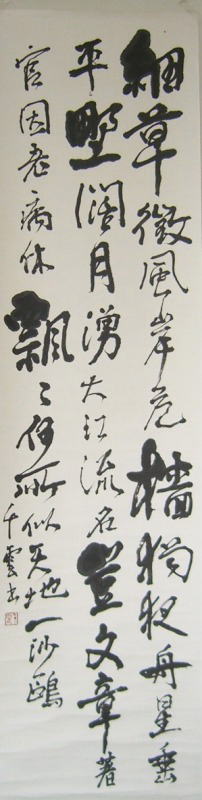 細草微風岸危檣獨夜舟星垂
平野闊月湧大江流名豈文章著
官因老病休飄〻何所似天地一沙鷗
千雲书